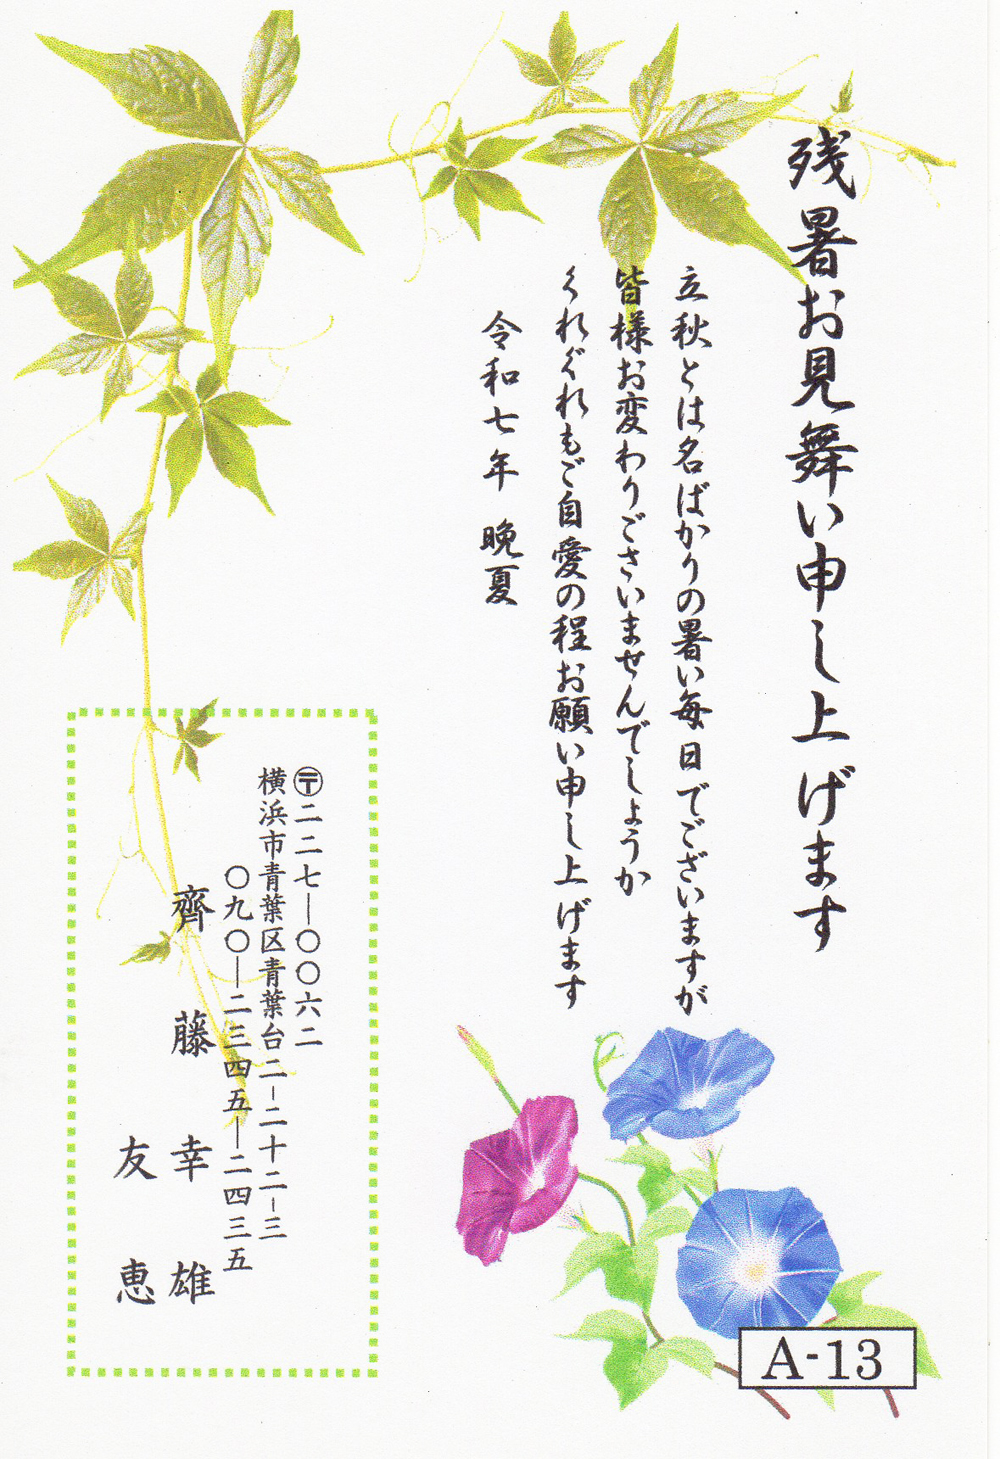 残暑お見舞い申し上げます
立秋とは名ばかりの暑い毎日でございますが
皆様お変わりございませんでしょうか
くれぐれもご自愛の程お願い申し上げます
令和七年 晩夏
〒二二七―〇〇六二
横浜市青葉区青葉台二―二十二―三
〇九〇―二三四五―二四三五
齊藤幸雄
友恵
A-13